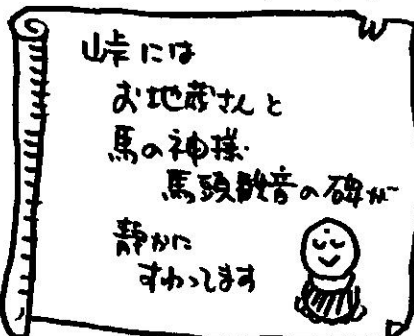 峠には
お地蔵さんと
馬の神様・
馬頭観音の碑が
静かに
すわってます